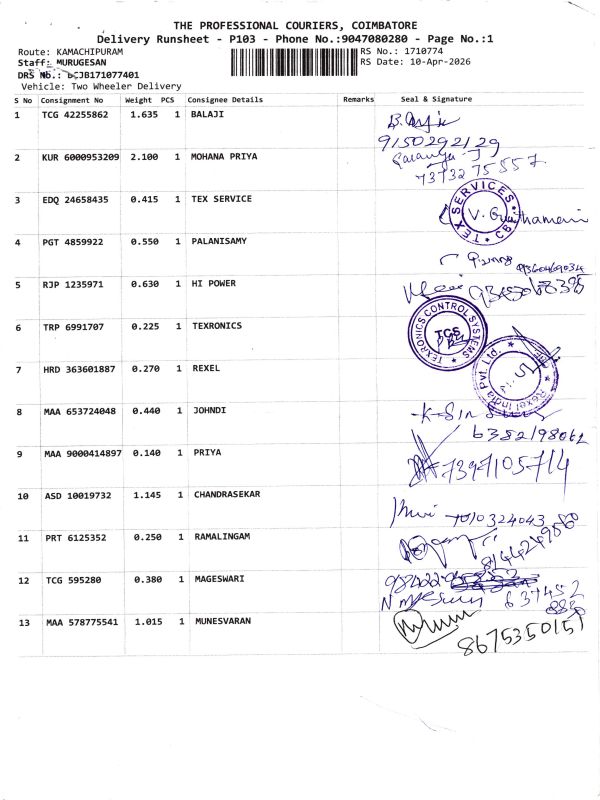 THE PROFESSIONAL COURIERS, COIMBATORE
Delivery Runsheet - P103 - Phone No.:9047080280 - Page No.:1
Route: KAMACHIPURAM
RS No.: 1710774
Staff: MURUGESAN
RS Date: 10-Apr-2026
DRS No.: BCJB171077401
Vehicle: Two Wheeler Delivery
S No Consignment No Weight PCS Consignee Details Remarks Seal & Signature
1 TCG 42255862 1.635 1 BALAJI
9150292129
2 KUR 6000953209 2.100 1 MOHANA PRIYA
Saranya J
7373275557
3 EDQ 24658435 0.415 1 TEX SERVICE
TEX SERVICES CBE
V.
4 PGT 4859922 0.550 1 PALANISAMY
5 RJP 1235971 0.630 1 HI POWER
6 TRP 6991707 0.225 1 TEXRONICS
TEXRONICS CONTROL SYSTEMS
TCS
7 HRD 363601887 0.270 1 REXEL
Rexel India Pvt. Ltd.
8 MAA 653724048 0.440 1 JOHNDI
6382198062
9 MAA 9000414897 0.140 1 PRIYA
7397105714
10 ASD 10019732 1.145 1 CHANDRASEKAR
7010324043
11 PRT 6125352 0.250 1 RAMALINGAM
12 TCG 595280 0.380 1 MAGESWARI
637452
13 MAA 578775541 1.015 1 MUNESVARAN
8675350151